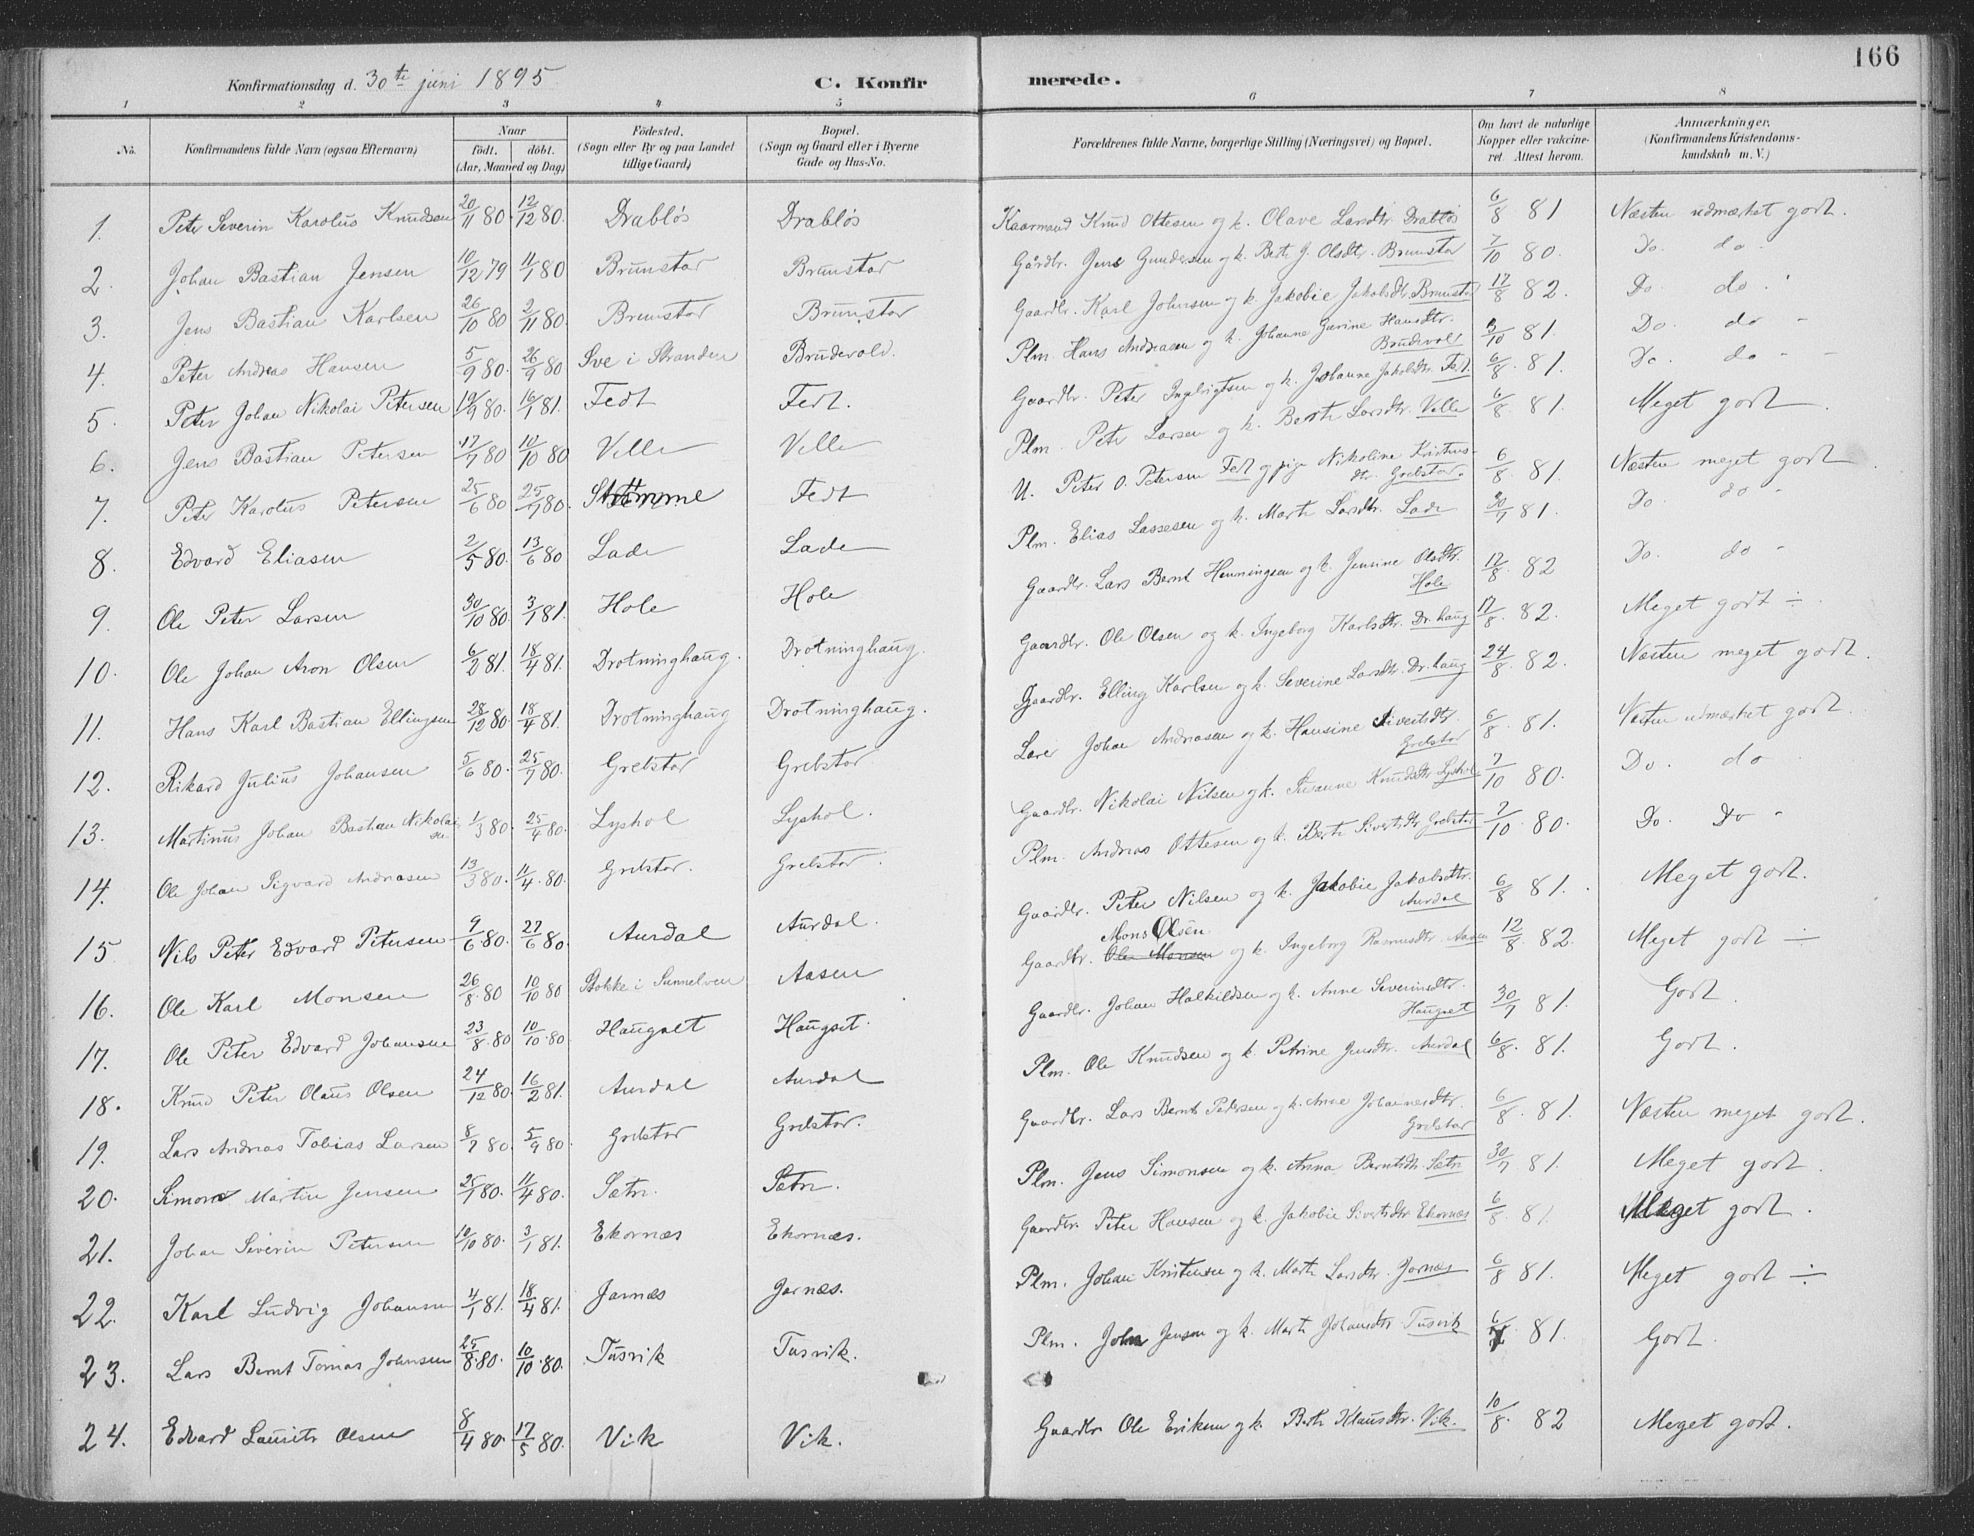 166
Konfirmationsdag d. 30te juni 1895
C. Konfirmerede.
1 2 3 4 5 6 7 8
No. Konfirmandens fulde Navn (ogsaa Efternavn) Naar født. døbt. (Aar, Maaned og Dag) Fødested. (Sogn eller By og paa Landet tillige Gaard) Bopæl. (Sogn og Gaard eller i Byerne Gade og Hus-No. Forældrenes fulde Navne, borgerlige Stilling (Næringsvei) og Bopæl. Om havt de naturlige Kopper eller vaccineret. Attest herom. Anmærkninger. (Konfirmandens Kristendomskundskab m. V.)
1. Peter Severin Karolus Knudsen 20/11 80. 12/12 80. Drabløs Drabløs Kaarmand Knud Ottesen og k. Olave Larsdtr. Drabløs 6/8 81 Næsten udmærket godt.
2. Johan Bastian Jensen 10/12 79 11/1 80 Brunstar Brunstar Gårdbr. Jens Gundersen og k. Berte J. Olsdtr. Brunstar 7/10 80. Do. do.
3. Jens Bastian Karlsen 26/10 80 2/11 80. Brunstar Brunstar Gaardbr. Karl Johnsen og k. Jakobie Jakobsdtr. Brunstad 12/8 82. Do. do.
4. Peter Andreas Hansen 5/9 80. 26/9 80 Sve i Stranden Brudevold. Plm. Hans Andreasen og k. Johanne Garine Hansdtr. Brudevold 3/10 81. Do. do -
5. Peter Johan Nikolai Petersen 19/9 80. 16/1 81. Fedt Fedt. Gaardbr. Peter Ingebrigtsen og k. Johanne Jakobsdtr. Fedt. 6/8 81. Do. do - -
6. Jens Bastian Petersen 17/7 80 10/10 80 Velle Velle Plm. Peter Larsen og k. Berthe Larsdtr. Velle 6/8 81 Meget godt.
7. Peter Karolus Petersen 25/6 80 25/7 80. Stømme Fedt U. Peter O. Petersen Fedt og pige Nikoline Kristensdtr. Grebstar. 6/8 81. Næsten meget godt
8. Edvard Eliasen 2/5 80. 13/6 80 Lade Lade Plm. Elias Lassesen og k. Marte Larsdtr. Lade 30/7 81. Do. do -
9. Ole Peter Larsen 30/10 80 3/1 81. Hole Hole Gaardbr. Lars Bernt Henningsen og k. Jensine Olsdtr. Hole 12/8. 82 Do. do -
10. Ole Johan Aron Olsen 6/2 81. 18/4 81. Drotninghaug. Drotninghaug. Gaardbr. Ole Olsen og k. Ingeborg Karlsdtr. Dr. haug 17/8. 82. Meget godt ÷.
11. Hans Karl Bastian Ellingsen 28/12 80. 18/4 81. Drotninghaug Drotninghaug. Gaardbr. Elling Karlsen og k. Severine Larsdtr. Dr. haug 24/8. 82. Næsten meget godt.
12. Rikard Julius Johansen 5/6 80. 25/7 80. Grebstar Grebstar Lærer Johan Andreasen og k. Hansine Sivertsdtr. Grebstar 6/8. 81. Næsten udmærket godt.
13. Martinus Johan Bastian Nikolaisen 1/3 80. 25/4 80. Lyshol Lyshol. Gaardbr. Nikolai Nilsen og k. Susanne Knudsdtr. Lyshol 7/10 80. Do. do
14. Ole Johan Sigvard Andreasen 13/3 80. 11/4. 80. Grebstar. Grebstar. Plm. Andreas Ottesen og k. Berte Sivertsdtr. Grebstar 7/10. 80. Do. Do -
15 Nils Peter Edvard Petersen 9/6 80. 27/6 80 Aurdal Aurdal. Gaardbr. Peter Nilsen og k. Jakobie Jakobsdtr. Aurdal 6/8 81. Meget godt.
16. Ole Karl Monsen 26/8. 80 10/10 80 Stokke i Sunnelven Aasen Gaardbr. Ole Monsen Mons Olsen og k. Ingeborg Rasmusdtr. Aasen 12/8 82. Meget godt ÷
17. Ole Peter Edvard Johansen 23/8. 80 10/10. 80. Haugset Haugset. Gaardbr. Johan Halkildsen og k. Anne Severinsdtr. Haugset 30/7 81. Godt.
18. Knud Peter Olaus Olsen 24/12 80. 16/2 81. Aurdal Aurdal Plm. Ole Knudsen og k. Petrine Jensdtr. Aurdal 6/8. 81. Godt.
19. Lars Andreas Tobias Larsen 8/7 80. 5/9 80. Grebstar Grebstar. Gaardbr. Lars Bernt Pedersen og k. Anne Johannesdtr. Grebstar 6/8. 81. Næsten meget godt.
20. Simon Martin Jensen 25/1 80. 11/4 80. Sætre. Sætre. Plm. Jens Simonsen og k. Anna Berntsdtr. Sætre 30/7 81. Meget godt.
21. Johan Severin Petersen 10/10 80. 3/1 81. Ekornæs Ekornæs. Gaardbr. Peter Hansen og k. Jakobie Sivertsdtr. Ekornæs 6/8 81. Meget godt.
22. Karl Ludvig Johansen 4/1 81. 18/4 81. Jarnæs Jarnæs. Plm. Johan Kristensen og k. Marte Larsdtr. Jarnæs 6/8 81. Meget godt ÷
23. Lars Bernt Tomas Johnsen 25/8. 80. 10/10. 80. Tusvik Tusvik. Plm. John Jensen og k. Marte Johansdtr. Tusvik 6/7. 81. Godt.
24. Edvard Laurits Olsen 8/4 80. 17/5 80. Vik Vik. Gaardbr. Ole Eriksen og k. Berte Klausdtr. Vik. 10/8. 82 Meget godt.